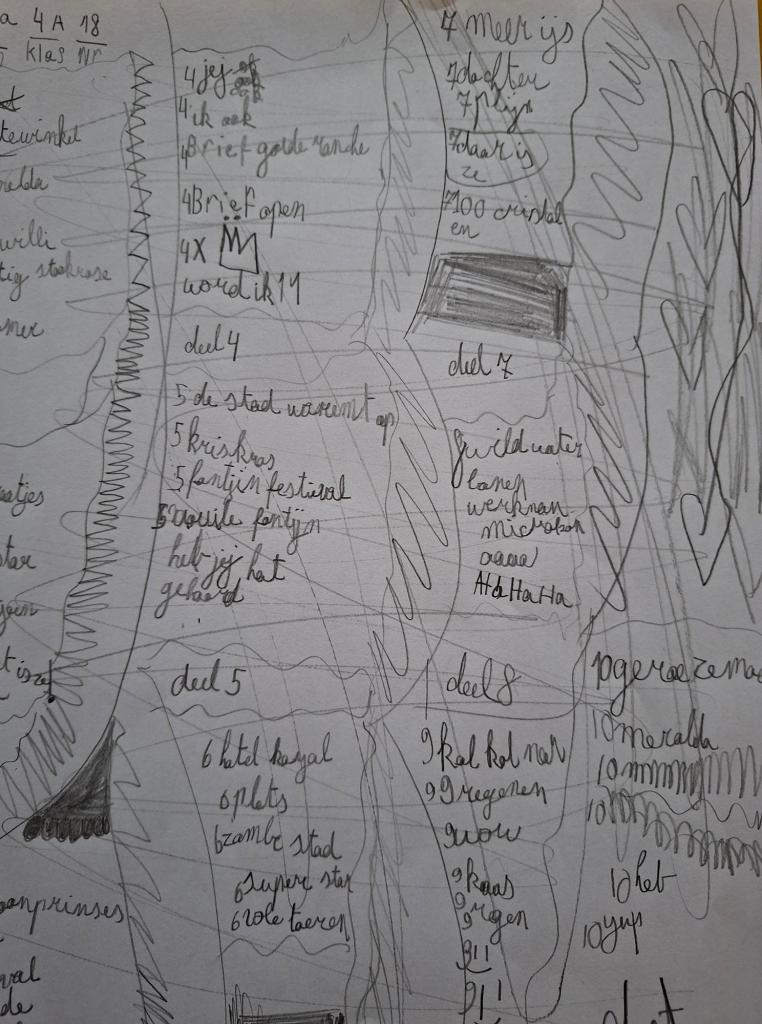 a 4A 18
klas Nr
tewinkel
relda
willi
tig stokrose
mer
aatjes
star
t is ze
oonprinses
val
de
4 jij
4 ik ook
4 Brief golde ranche
4 Brief open
4 X
word ik 11
deel 4
5 de stad waremt op
5 kriskras
5 fontijn festival
5 vouile fontijn
heb jij hat
gehoord
deel 5
6 hotel koyal
6 plets
6 zombe stad
6 super star
6 vole toeren
7 meer ijs
7 dochter
7 plijn
7 daar is
ze
7 100 cristal
en
deel 7
8 wild water
banen
werknan
microfoon
aaaa
HaHaHa
deel 8
9 kol kol nat
9 9 regenen
9 wow
9 kaas
9 regen
9 !!
9 !!
10 geroezema
10 meralda
10 mmm
10
10 heb
10 yup